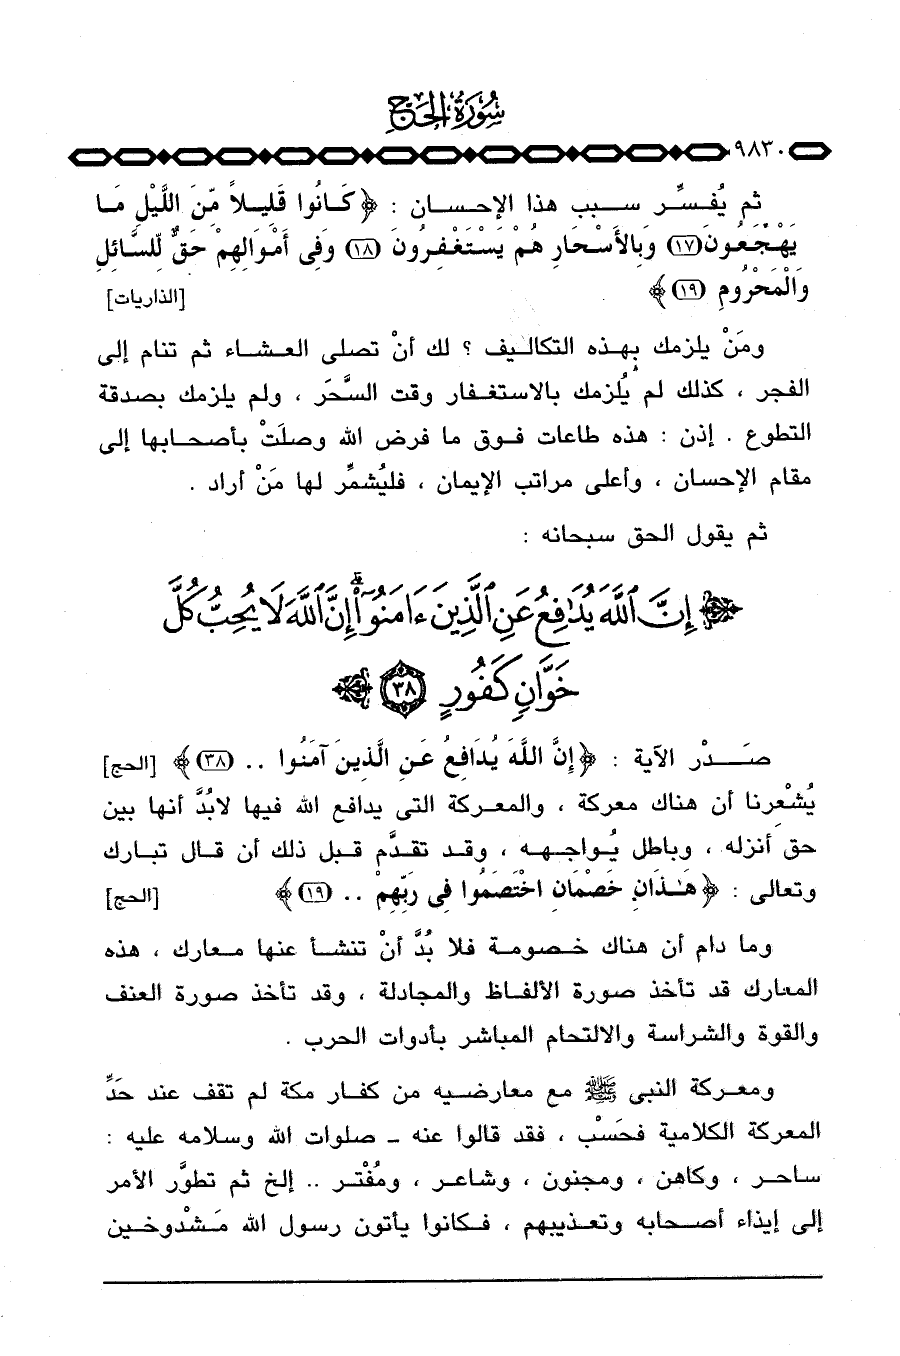 سُورَةُ الحَجّ
٩٨٣٠
ثم يُفسِّر سبب هذا الإحسان : ﴿ كَانُوا قَلِيلاً مِّنَ اللَّيْلِ مَا
يَهْجَعُونَ (١٧) وَبِالأَسْحَارِ هُمْ يَسْتَغْفِرُونَ (١٨) وَفِى أَمْوَالِهِمْ حَقٌّ لِّلسَّائِلِ
وَالْمَحْرُومِ (١٩) ﴾ [الذاريات]
ومَنْ يلزمك بهذه التكاليف ؟ لك أنْ تصلى العشاء ثم تنام إلى
الفجر ، كذلك لم يُلزمك بالاستغفار وقت السَّحَر ، ولم يلزمك بصدقة
التطوع . إذن : هذه طاعات فوق ما فرض الله وصلَتْ بأصحابها إلى
مقام الإحسان ، وأعلى مراتب الإيمان ، فليُشمِّر لها مَنْ أراد .
ثم يقول الحق سبحانه :
﴿ إِنَّ ٱللَّهَ يُدَٰفِعُ عَنِ ٱلَّذِينَ ءَامَنُوٓا۟ ۗ إِنَّ ٱللَّهَ لَا يُحِبُّ كُلَّ
خَوَّانٍ كَفُورٍ ٣٨ ﴾
صَدْر الآية : ﴿ إِنَّ اللَّهَ يُدَافِعُ عَنِ الَّذِينَ آمَنُوا .. (٣٨) ﴾ [الحج]
يُشْعِرنا أن هناك معركة ، والمعركة التى يدافع الله فيها لابُدَّ أنها بين
حق أنزله ، وباطل يُواجهه ، وقد تقدَّم قبل ذلك أن قال تبارك
وتعالى : ﴿ هَـٰذَانِ خَصْمَانِ اخْتَصَمُوا فِى رَبِّهِمْ .. (١٩) ﴾ [الحج]
وما دام أن هناك خصومة فلا بُدَّ أنْ تنشأ عنها معارك ، هذه
المعارك قد تأخذ صورة الألفاظ والمجادلة ، وقد تأخذ صورة العنف
والقوة والشراسة والالتحام المباشر بأدوات الحرب .
ومعركة النبى ﷺ مع معارضيه من كفار مكة لم تقف عند حَدِّ
المعركة الكلامية فحَسْب ، فقد قالوا عنه ـ صلوات الله وسلامه عليه :
ساحر ، وكاهن ، ومجنون ، وشاعر ، ومُفْتر .. إلخ ثم تطوَّر الأمر
إلى إيذاء أصحابه وتعذيبهم ، فكانوا يأتون رسول الله مَشْدوخين